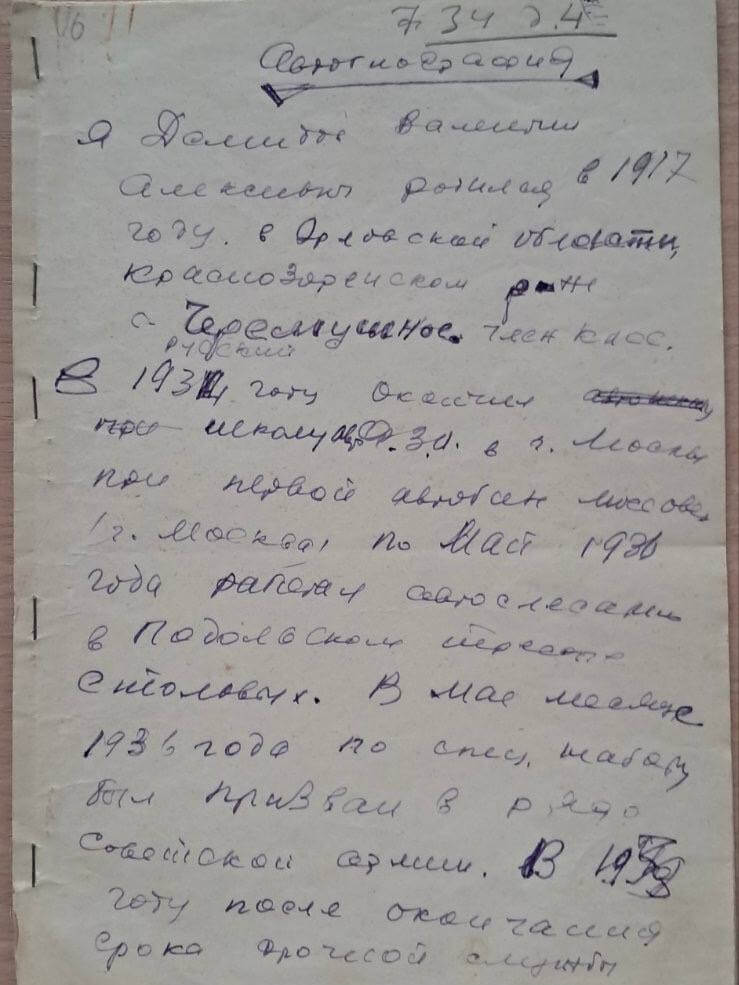 16
34 д. 4
Автобиография
Я Валентин
Алексеевич родился в 1917
году. в Орловской области,
Краснозоренском р-не
с. Черемушное. член КПСС.
русский
В 1934 году окончил
школу Ф.З.У. в г. Москвы
при первой автобазе Моссовет
/г. Москва/ по Май 1936
года работал автослесарем
в Подольском тресте
Столовых. В мае месяце
1936 года по спец. набору
был призван в ряды
Советской армии. В 1938
году после окончания
срока срочной службы